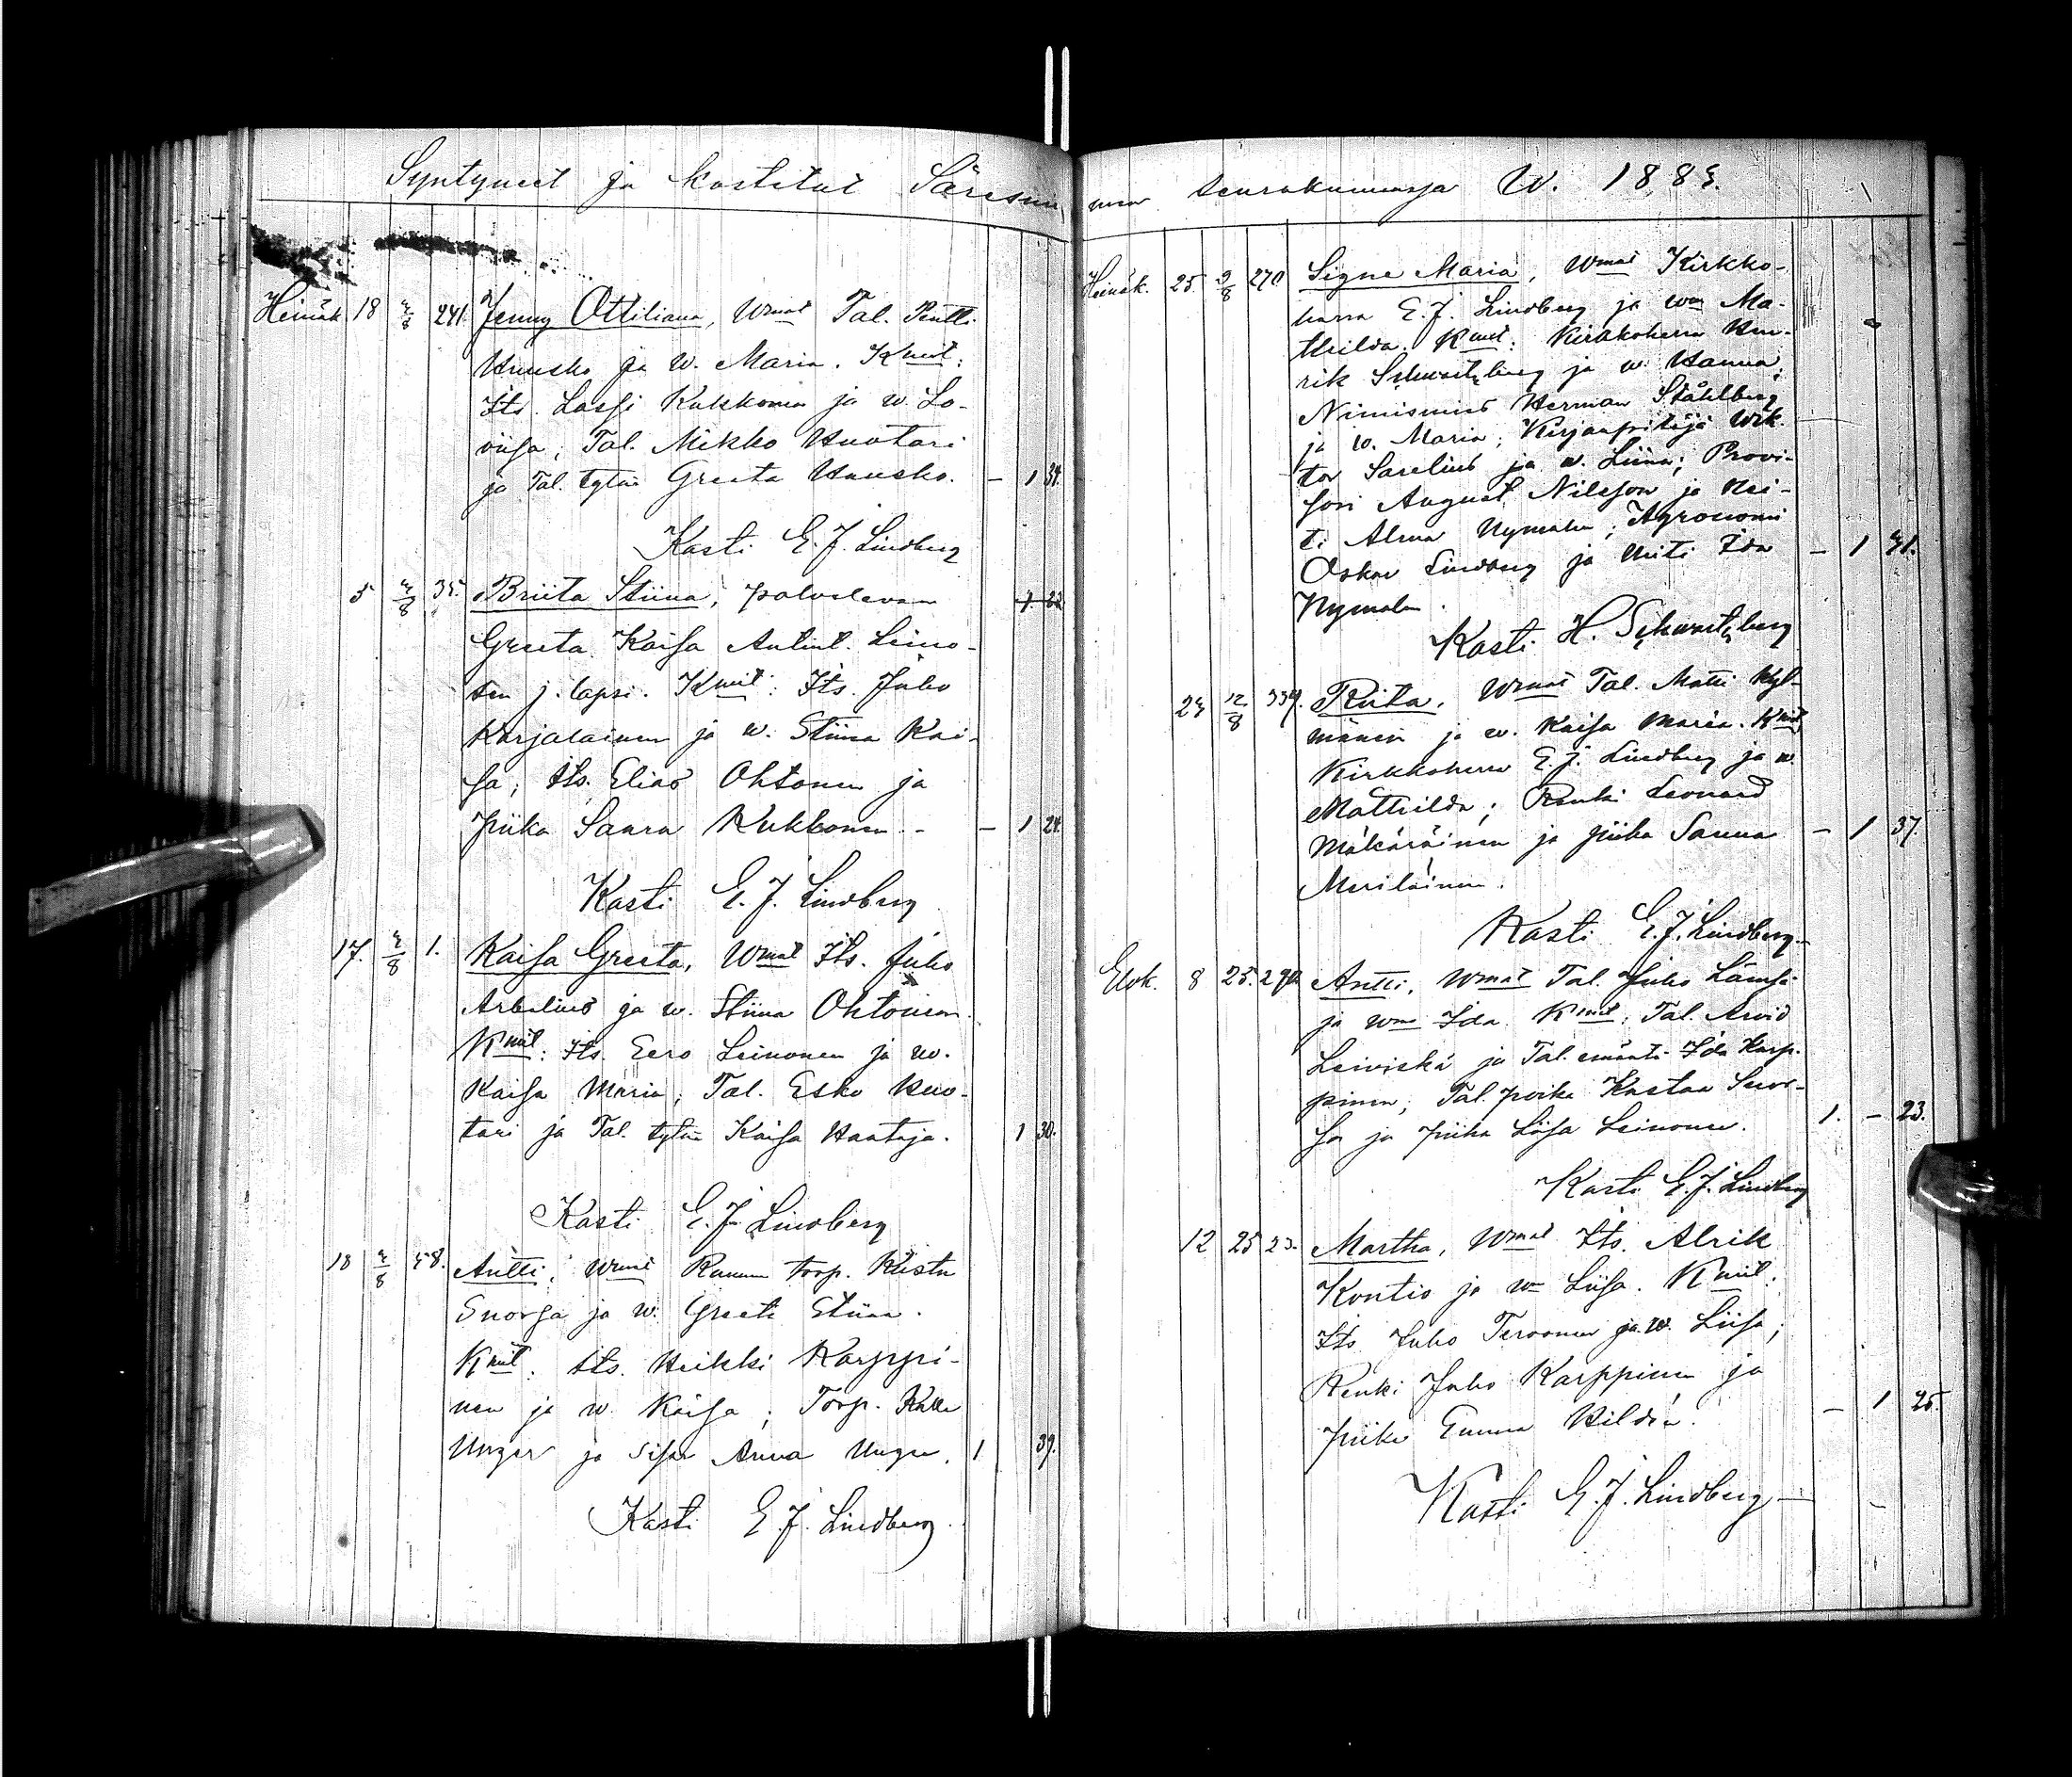 Syntyneet ja kastetut Säresnie
Heinäk 18 4/8 241. Jenny Ottiliana, Wmat Tal. Pentti
Huusko ja w. Maria. Kmit:
Its. Lassi Kukkonen ja w. Lo-
viisa; Tal. Mikko Huotari
ja Tal. tytär Greeta Huusko. — 1 34.
Kasti E. J. Lindberg
5 4/8 35. Briita Stiina, palvelevan
Greeta Kaisa Antint. Leino-
sen j. lapsi. Kmit: Its. Juho
Karjalainen ja w. Stiina Kai-
sa; Its. Elias Ohtonen ja
piika Saara Kukkonen. — 1 24.
Kasti E. J. Lindberg
17. 4/8 1. Kaisa Greeta, Wmat Its. Juho
Arbelius ja w. Stiina Ohtonen.
Kmit: Its. Eero Leinonen ja w.
Kaisa Maria; Tal. Esko Huo-
tari ja Tal. tytär Kaisa Haataja. 1 30.
Kasti E. J. Lindberg
18 4/8 58. Antti, Wmat torp. Kusta
Snorsa ja w. Greeta Stiina.
Kmit: Its. Heikki Karppi-
nen ja w. Kaisa; Torp. Kalle
Unger ja sisar Anna Unger. 1 39.
Kasti E. J. Lindberg.
men seurakunnassa W. 1884.
Heinäk. 25. 9/8 270 Signe Maria, Wmat Kirkko-
herra E. J. Lindberg ja wm Ma-
thilda. Kmit: Kirkkoherra Hen-
rik Schwartzberg ja w. Hanna;
Nimismies Herman Ståhlberg
ja w. Maria; Kirjanpitäjä Wik-
tor Sarelius ja w. Liina; Provi-
sori August Nilsson ja Nei-
ti Alma Nyman; Agronomi
Oskar Lindberg ja Neiti Ida — 1 41.
Nyman.
Kasti H. Schwartzberg
24 12/8 339. Riita, Wmat Tal. Matti Kyl-
mänen ja w. Kaisa Maria. Kmit
Kirkkoherra E. J. Lindberg ja w.
Mathilda; Renki Leonard
Mäkäräinen ja piika Sanna — 1 37.
Meriläinen.
Kasti E. J. Lindberg.
Elok. 8 25. Antti, Wmat Tal. Juho Lämsä
ja wm Ida. Kmit: Tal. Arvid
Leiviskä ja Tal. emäntä Ida Karp-
pinen; Tal. poika Kustaa
ja piika Liisa Leinonen. 1. — 23.
Kasti E. J. Lindberg
12 25 23. Martha, Wmat Its. Alrik
Kontio ja wm Liisa. Kmit:
Its Juho Tervonen ja w. Liisa;
Renki Juho Karppinen ja
piika Emma Hildén. — 1 25.
Kasti E. J. Lindberg —